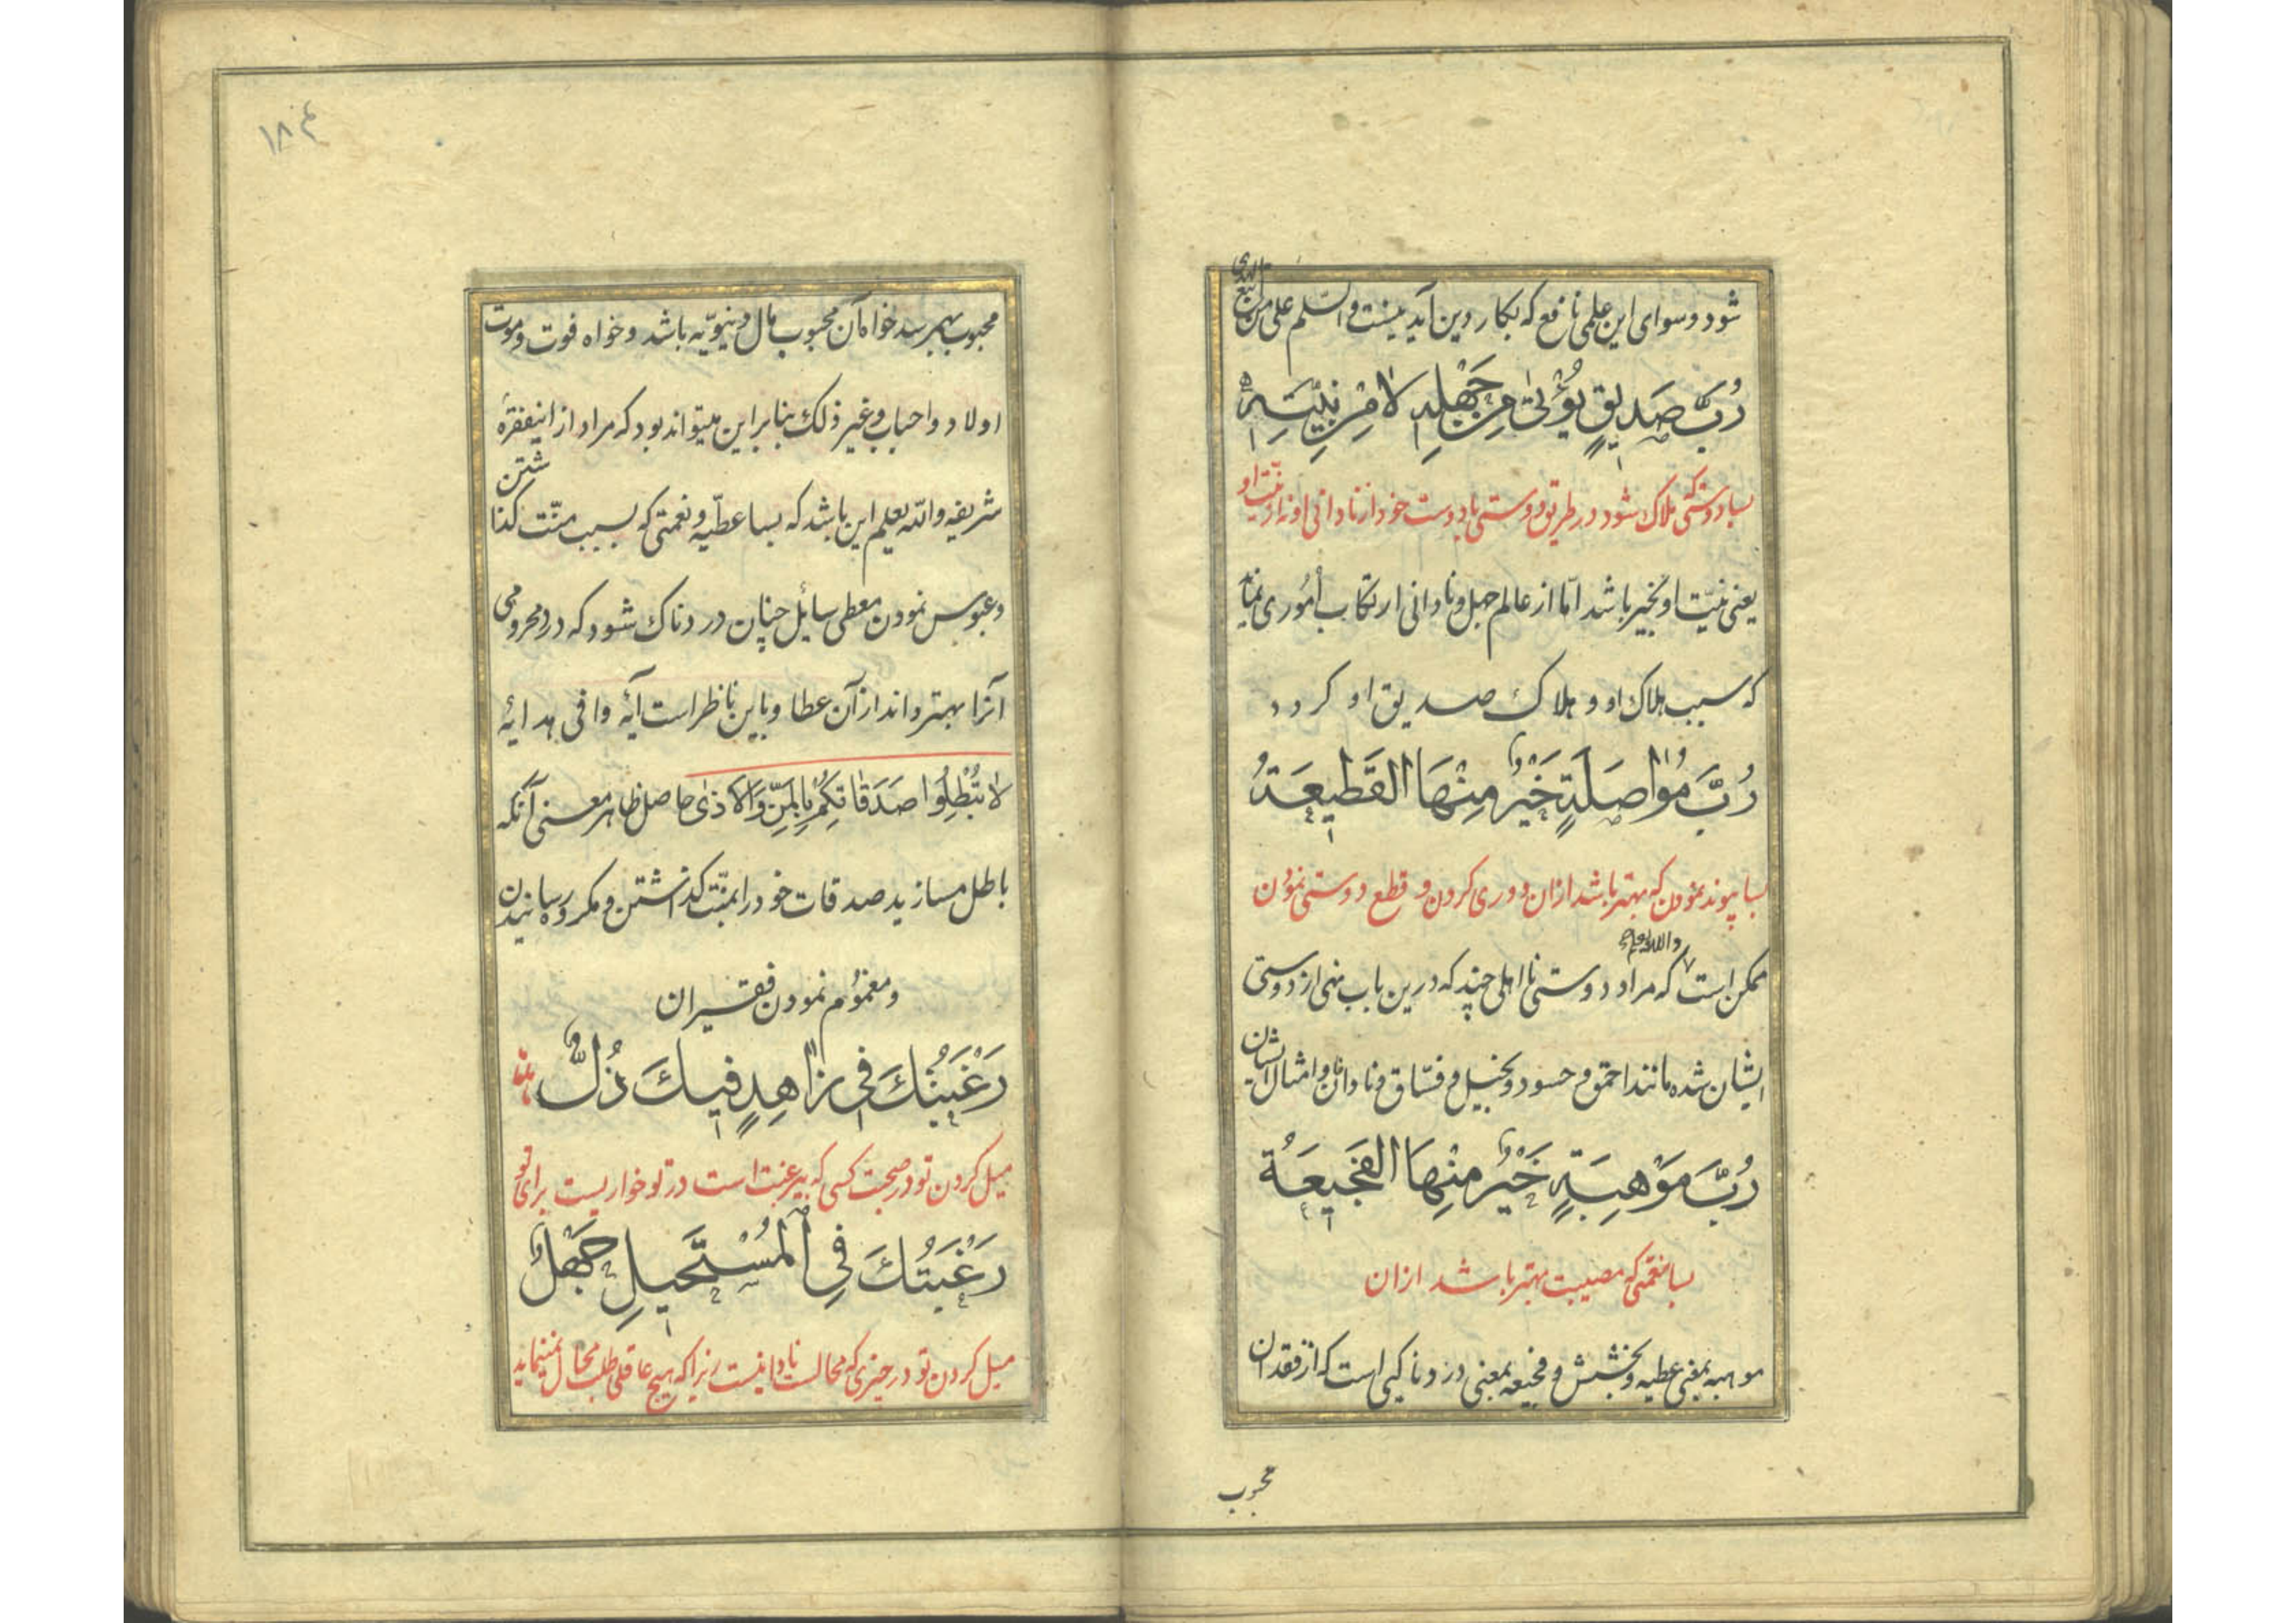 شود و سوای این علمی نافع که بکار دین آید نیست والسّلم علی من اتبع الهدی
رُبَّ صَدیقٍ یُؤْتیٰ مِنْ جَهْلِهِ لا مِنْ نِیَّتِهِ
بسا دوستی که هلاک شود در طریق دوستی با دوست خود از نادانی او نه از نیّت او
یعنی نیّت او بخیر باشد امّا از عالم جهل و نادانی ارتکاب اُموری نماید
که سبب هلاک او و هلاک صدیق او کردد
رُبَّ مُواصَلَةٍ خَیْرٌ مِنْهَا القَطیعَةُ
بسا پیوند نمودن که بهتر باشد ازان دوری کردن و قطع دوستی نمودن
ممکن است والله یعلم که مراد دوستی نااهلی چند که درین باب نهی از دوستی
ایشان شده مانند احمق و حسود و بخیل و فسّاق و نادانان و امثال ایشان
رُبَّ مَوْهِبَةٍ خَیْرٌ مِنْهَا الفَجیعَةُ
بسا نعمتی که مصیبت بهتر باشد ازان
موهبه بمعنی عطیه و بخشش و فجیعه بمعنی دردناکیی است که از فقدان
محبوب
۱۸۴
محبوب بهم رسد خواه آن محبوب مال دنیویّه باشد و خواه فوت و موت
اولاد و احباب و غیر ذلک بنابراین میتواند بود که مراد از اینفقرهٔ
شریفه والله یعلم این باشد که بسا عطیّه و نعمتی که بسبب منّت کذاشتن
و عبوس نمودن معطی سایل چنان دردناک شود که درد محرومی
آنرا بهتر داند از آن عطا و باین ناظر است آیهٔ وافی هدایهٔ
لا تُبْطِلُوا صَدَقاتِکُمْ بِالمَنِّ وَالاَذیٰ حاصل ظاهر معنی آنکه
باطل مسازید صدقات خود را بمنّت کذاشتن و مکروه رسانیدن
و مغموم نمودن فقیران
رَغْبَتُكَ فی زاهِدٍ فیكَ ذُلٌّ
میل کردن تو در صحبت کسی که بیرغبت است در تو خواریست برای تو
رَغْبَتُكَ فِی المُسْتَحیلِ جَهْلٌ
میل کردن تو در چیزی که محالست نادانیست زیرا که هیچ عاقلی طلب محال نمینماید